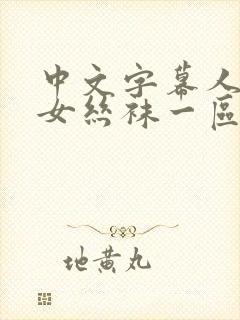 中文字幕人
女丝袜一區
地黄丸